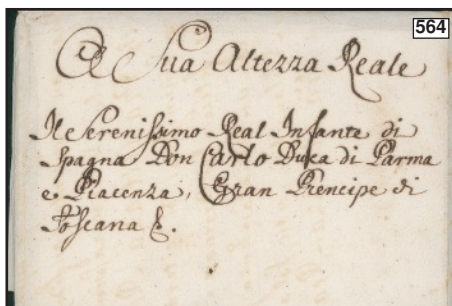 564
A Sua Altezza Reale
Il Serenissimo Real Infante di
Spagna Don Carlo Duca di Parma
e Piacenza, Gran Prencipe di
Toscana &.